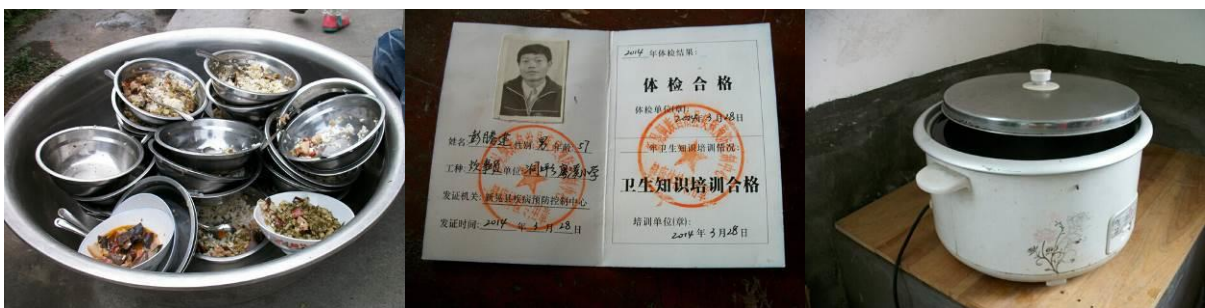 姓名:彭腾建 性别:男 年龄 57
工种:炊事员 单位:
小学
发证机关: 疾病预防控制中心
发证时间:2014 年 3 月 28 日
2014 年体检结果:
体检合格
体检单位(章):
2014年3月28日
年卫生知识培训情况:
卫生知识培训合格
培训单位(章):
2014 年 3 月 28 日